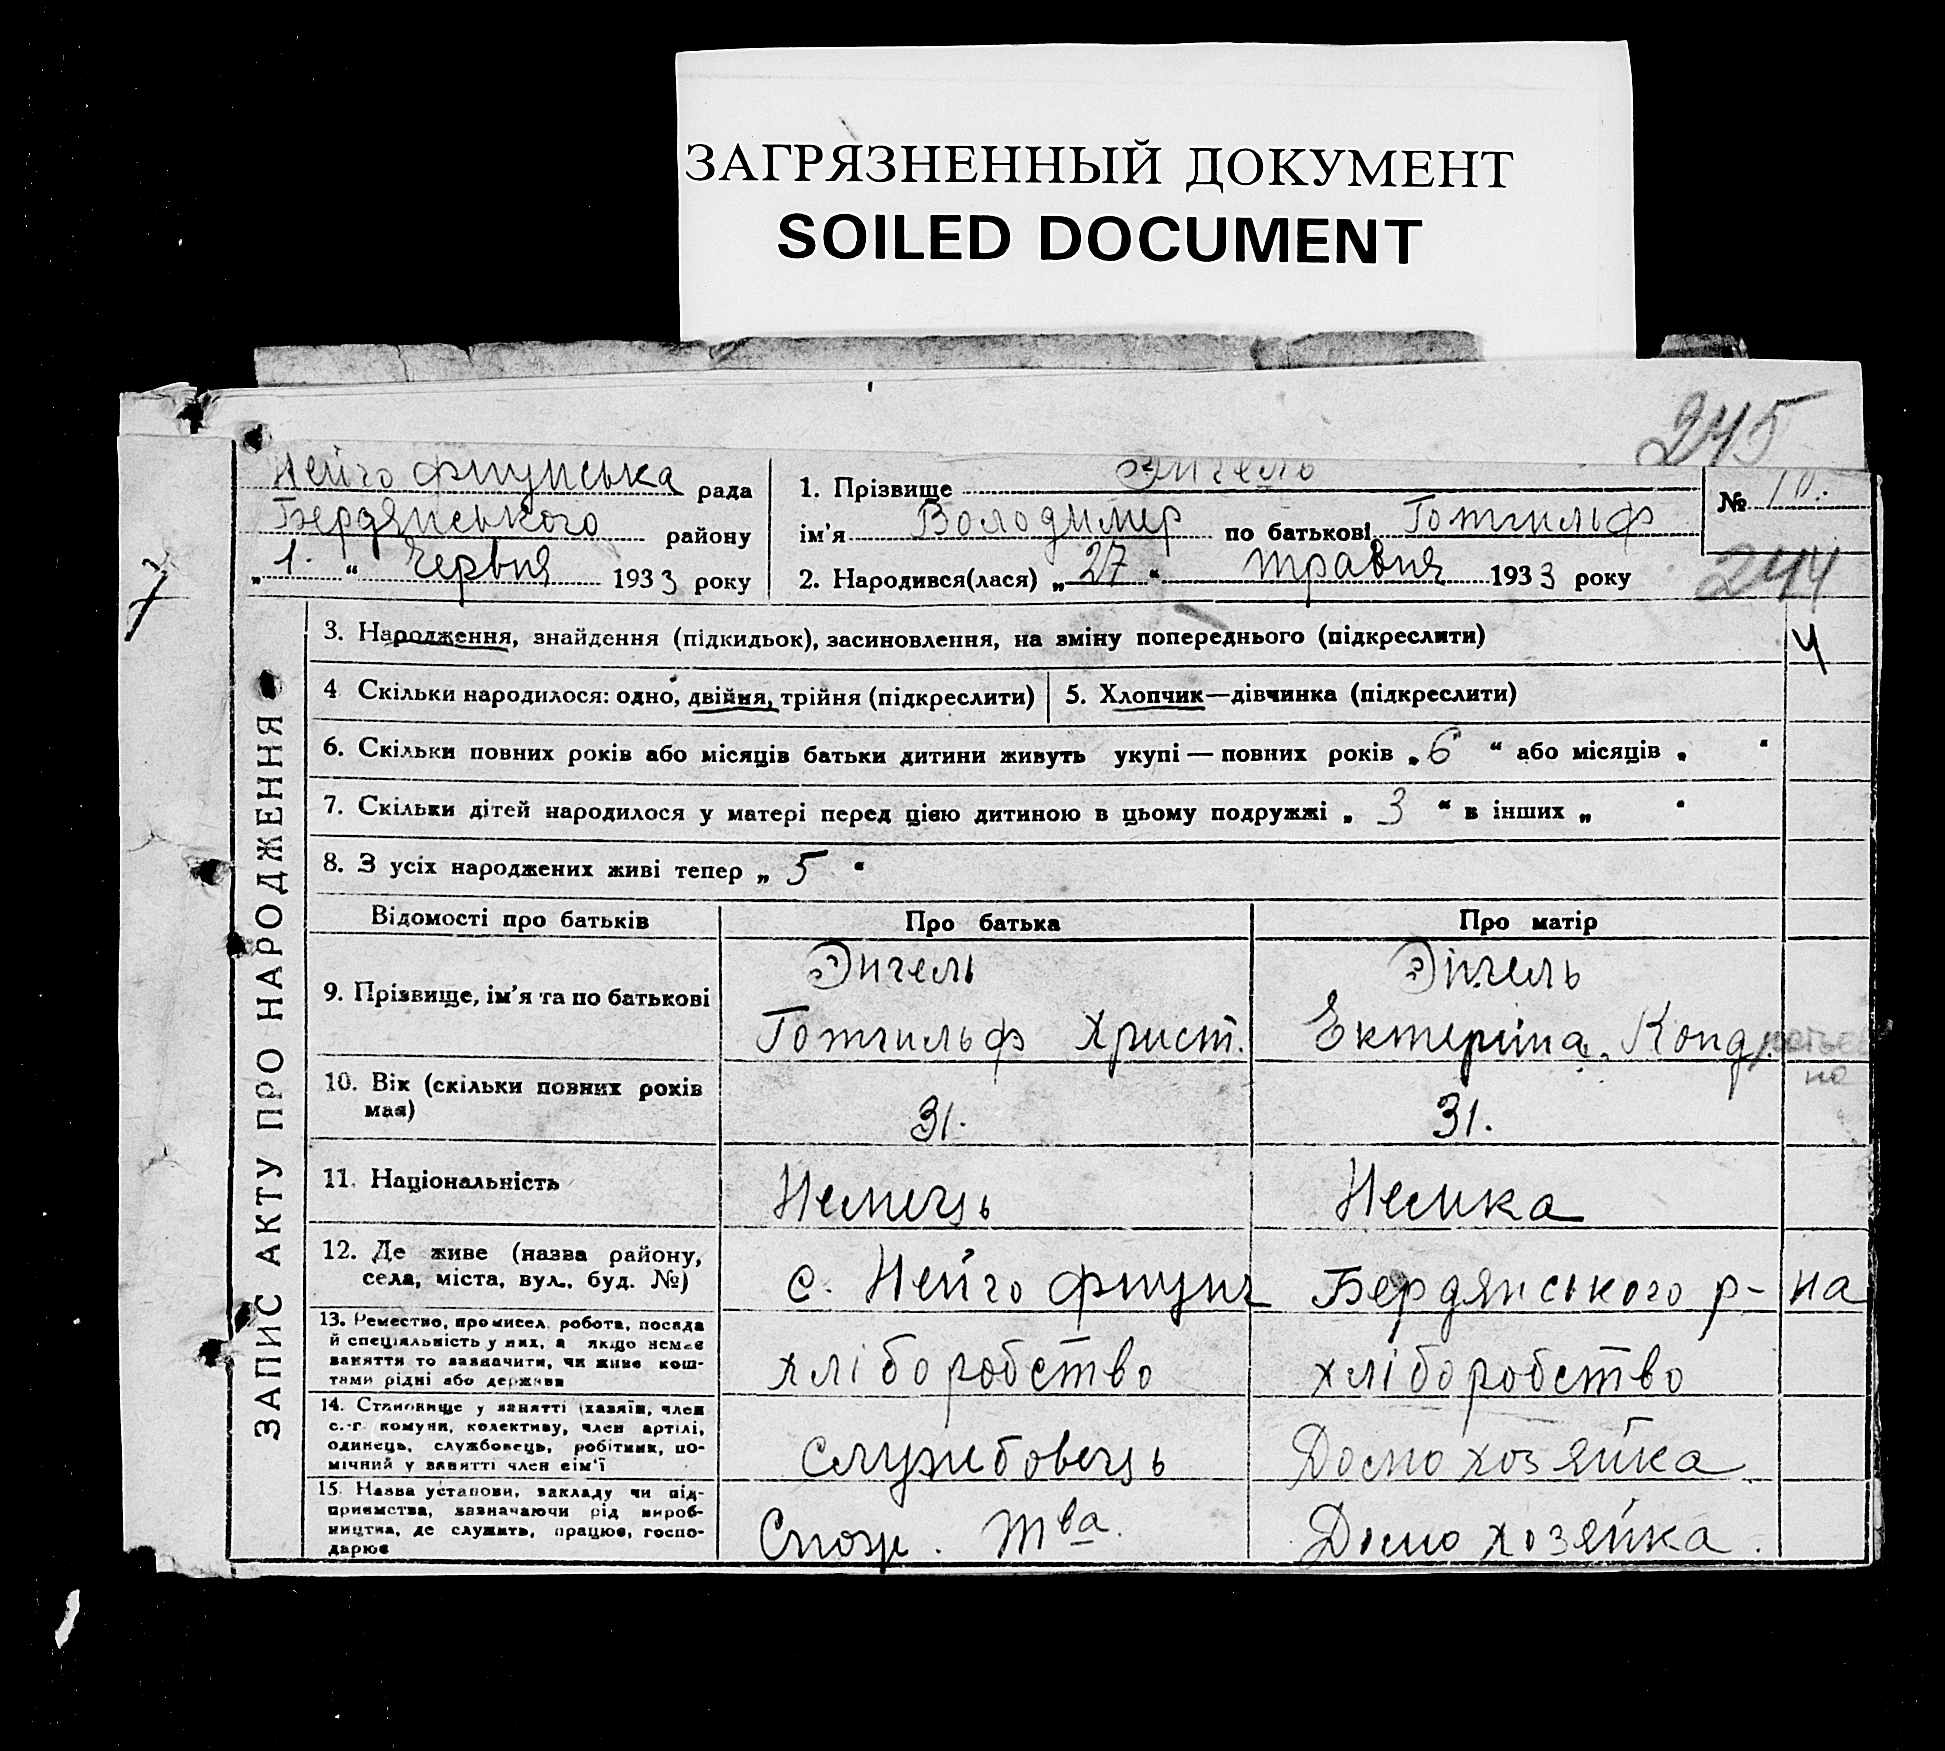 ЗАГРЯЗНЕННЫЙ ДОКУМЕНТ
SOILED DOCUMENT
245
Нейгофшунська рада
Бердянського району
„ 1. “ Червня 1933 року
1. Прізвище Энгель
ім'я Володимер по батькові Готгильф
2. Народився(лася) „ 27 “ травня 1933 року
№ 10.
244
7
ЗАПИС АКТУ ПРО НАРОДЖЕННЯ
3. Народження, знайдення (підкидьок), засиновлення, на зміну попереднього (підкреслити)
4
4 Скільки народилося: одно, двійня, трійня (підкреслити)
5. Хлопчик—дівчинка (підкреслити)
6. Скільки повних років або місяців батьки дитини живуть укупі — повних років „ 6 “ або місяців „ “
7. Скільки дітей народилося у матері перед цією дитиною в цьому подружжі „ 3 “ в інших „ “
8. З усіх народжених живі тепер „ 5 “
Відомості про батьків Про батька Про матір
9. Прізвище, ім'я та по батькові
Энгель
Готгильф Христ.
Энгель
Ектеріна Конд
10. Вік (скільки повних років
має)
31.
31.
11. Національність
Немець
Немка
12. Де живе (назва району,
села, міста, вул., буд. №)
с. Нейгофшунг
Бердянського р-на
13. Ремество, промисел, робота, посада
й спеціяльність у них, а якщо немає
заняття то зазначити, чи живе кош-
тами рідні або держави
хліборобство
хліборобство
14. Становище у занятті (хазяїн, член
с.-г. комуни, колективу, член артілі,
одинець, службовець, робітник, по-
мічний у занятті член сім'ї
Службовець
Домохозяйка
15. Назва установи, закладу чи під-
приємства, зазначаючи рід вироб-
ництва, де служить, працює, госпо-
дарює
Спож. Т-ва.
Домохозяйка.